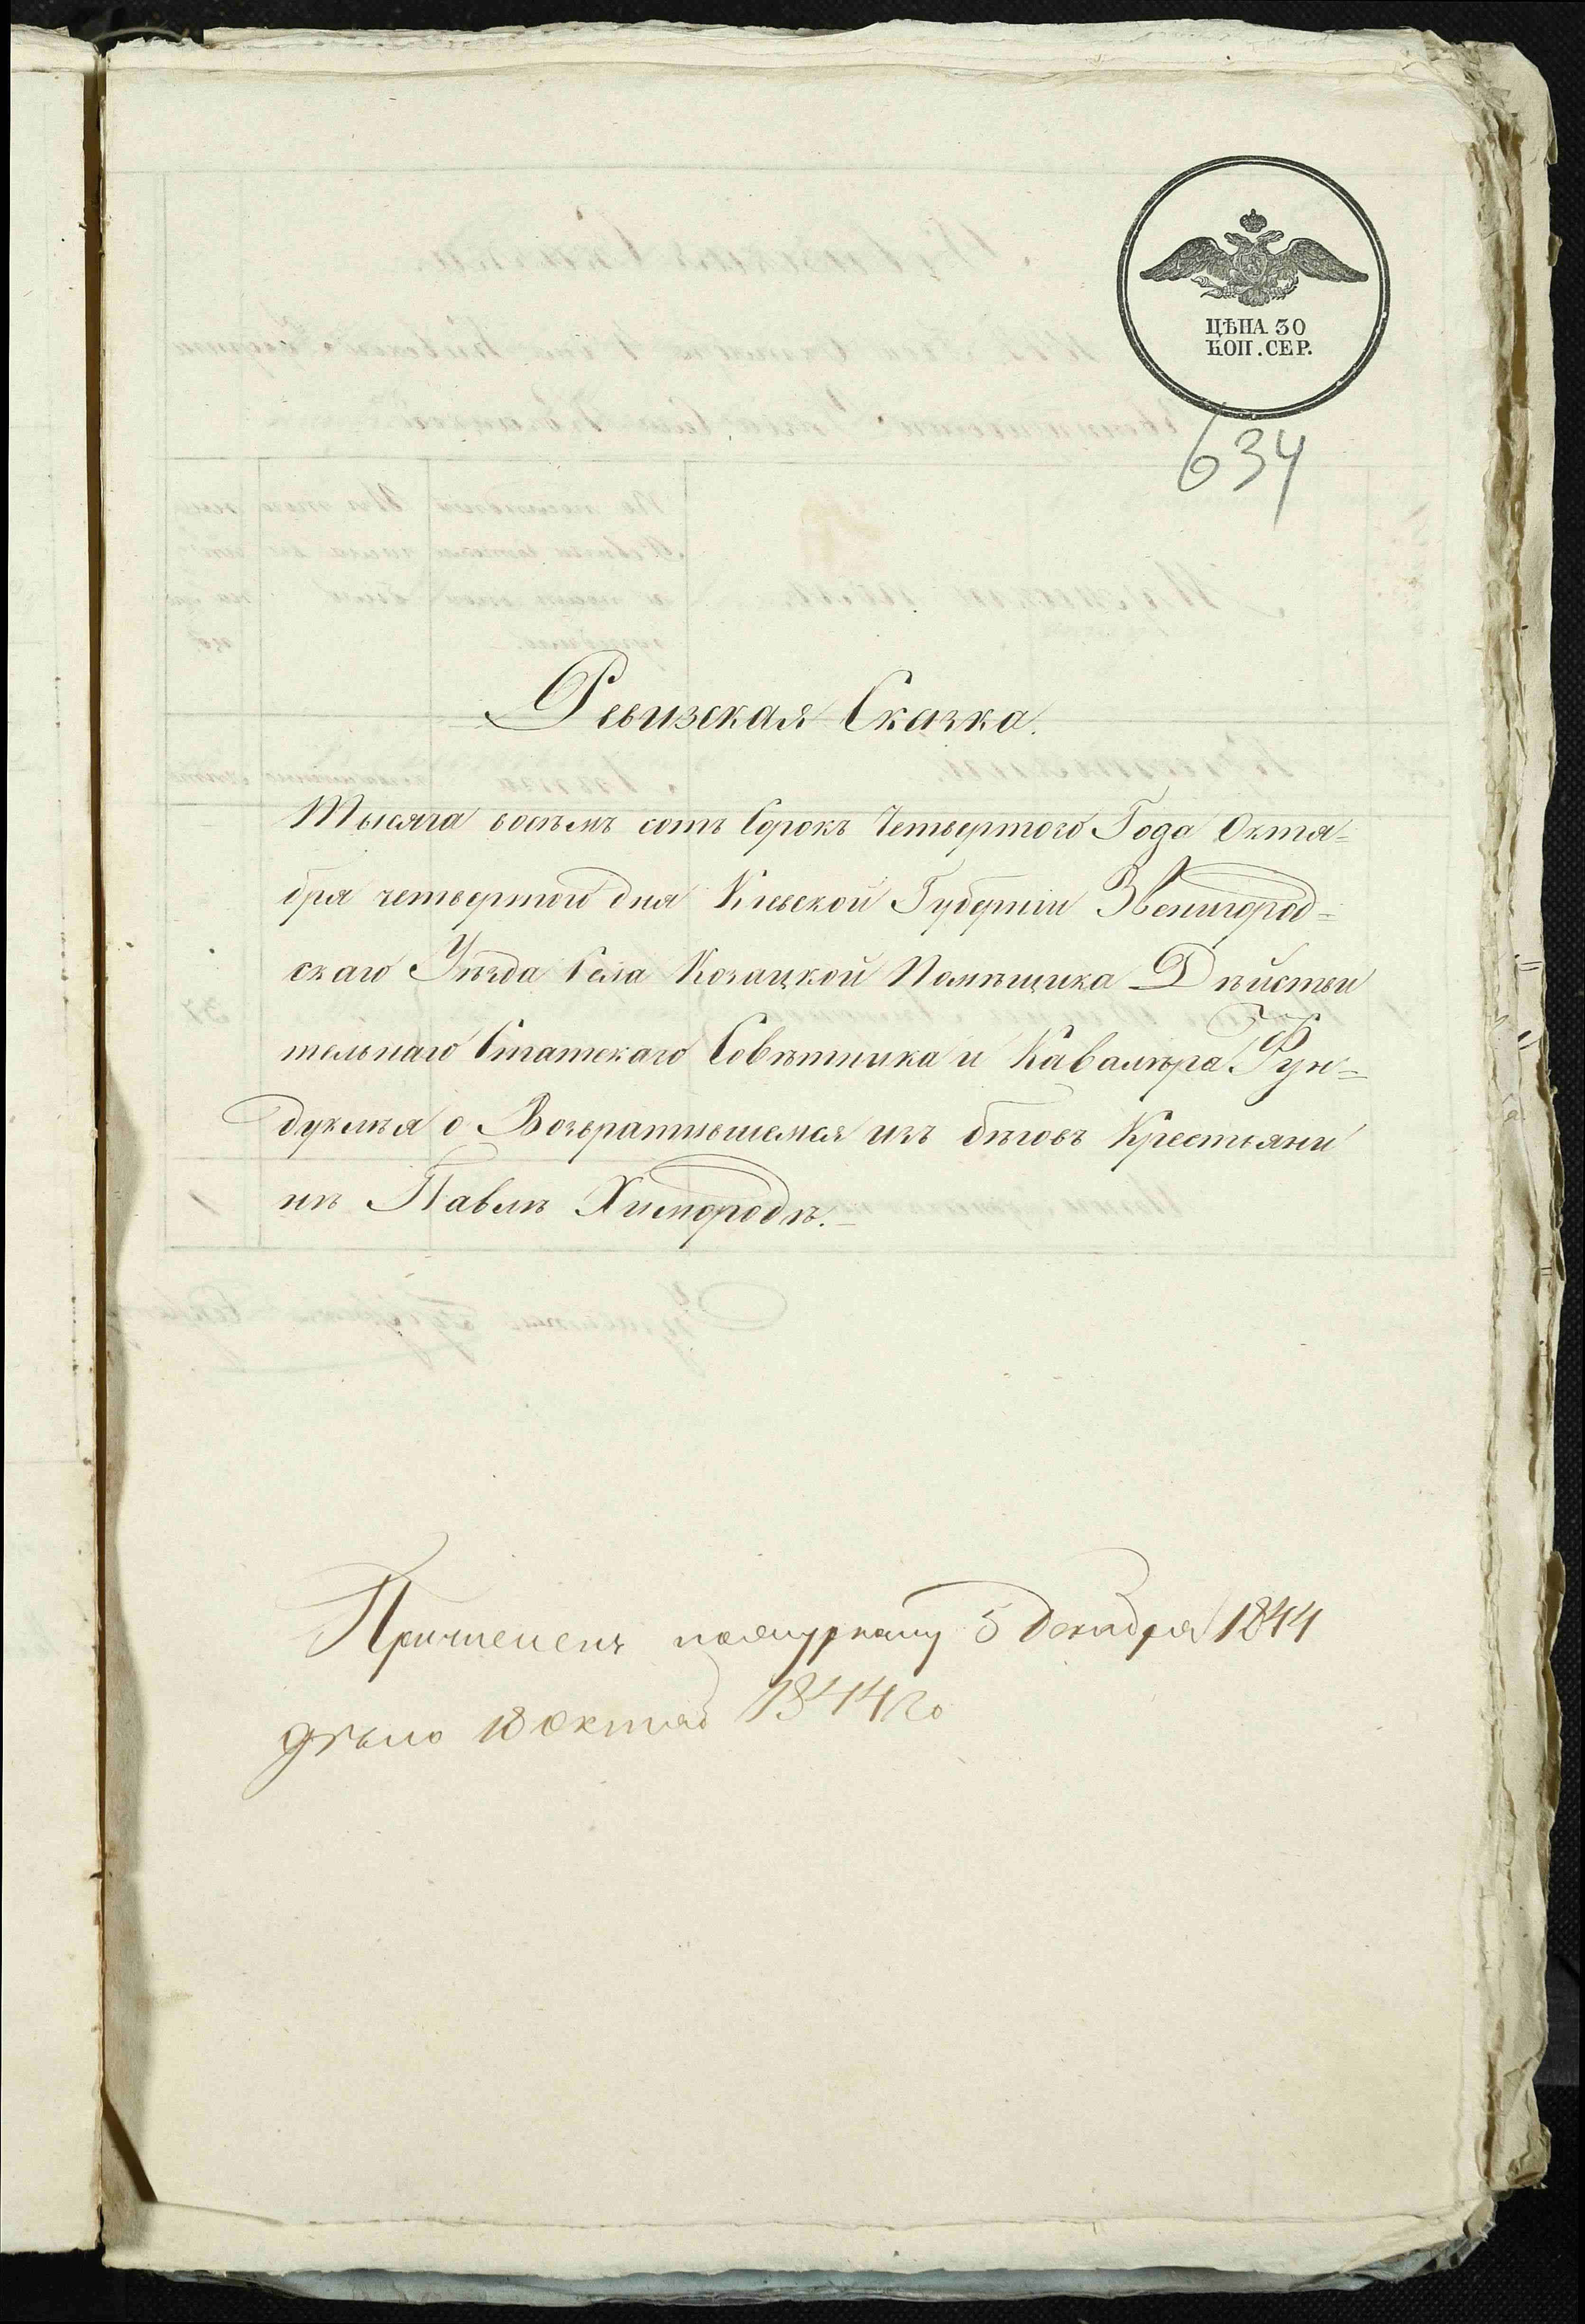 ЦѢНА 30
КОП. СЕР.
634
Ревизская Сказка.
Тысяча восѣмъ сотъ Сорокъ Четвертого Года Октя=
бря четвертого дня Кіевской Губерніи Звенигород=
скаго Уѣзда Села Козацкой Помѣщика Дѣйстви
тельнаго Статскаго Совѣтника и Кавалѣра Фун=
дуклѣя о Возвратившемся изъ бѣговъ Крестьяни
нѣ Павлѣ Химородѣ.
Причисленъ 5 декабря 1844
дѣло 18 октяб 1844 го